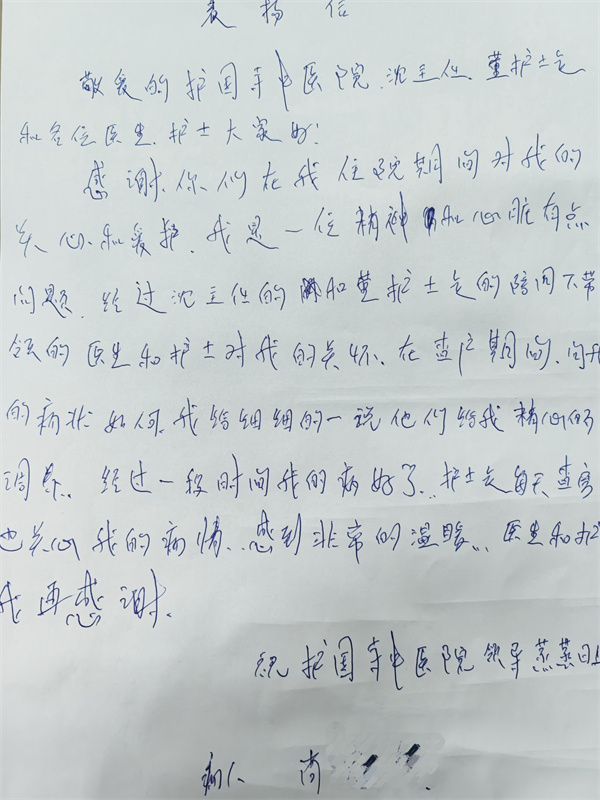 表扬信
敬爱的护国寺中医院、沈主任、董护士长
和各位医生、护士大家好!
感谢你们在我住院期间对我的
关心和爱护、我是一位精神和心脏有点
问题、经过沈主任的和董护士长的陪同下带
领的医生和护士对我的关怀、在查户期间、问我
的病状如何、我给细细的一说他们给我精心的
调养、经过一段时间我的病好了、护士长每天查房
也关心我的病情、感到非常的温暖、医生和护
我再感谢、
祝护国寺中医院领导蒸蒸日上
病人 尚